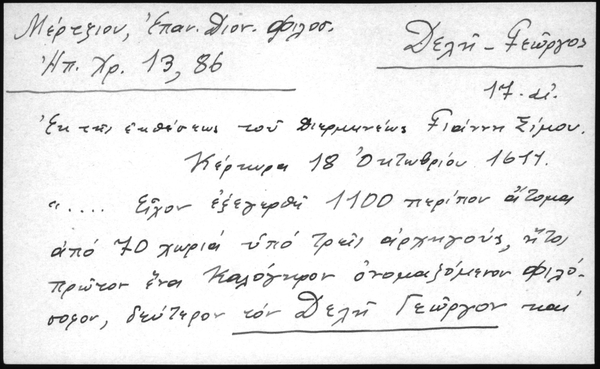 Μέρτζιον, Ἐπαν. Διον. Φιλοσ.
Ἠπ. Χρ. 13, 86
Δελῆ - Γεῶργος
17. αἰ.
Ἐκ τῆς ἐκθέσεως τοῦ Διερμηνέως Γιάννη Σίμου.
Κέρκυρα 18 Ὀκτωβρίου 1611.
".... Εἶχον ἐξεγερθῆ 1100 περίπου ἄτομα
ἀπό 70 χωριά ὑπό τρεῖς ἀρχηγούς, ἤτοι
πρῶτον ἕνα Καλόγηρον ὀνομαζόμενον Φιλό-
σοφον, δεύτερον τόν Δελῆ Γεῶργον καί